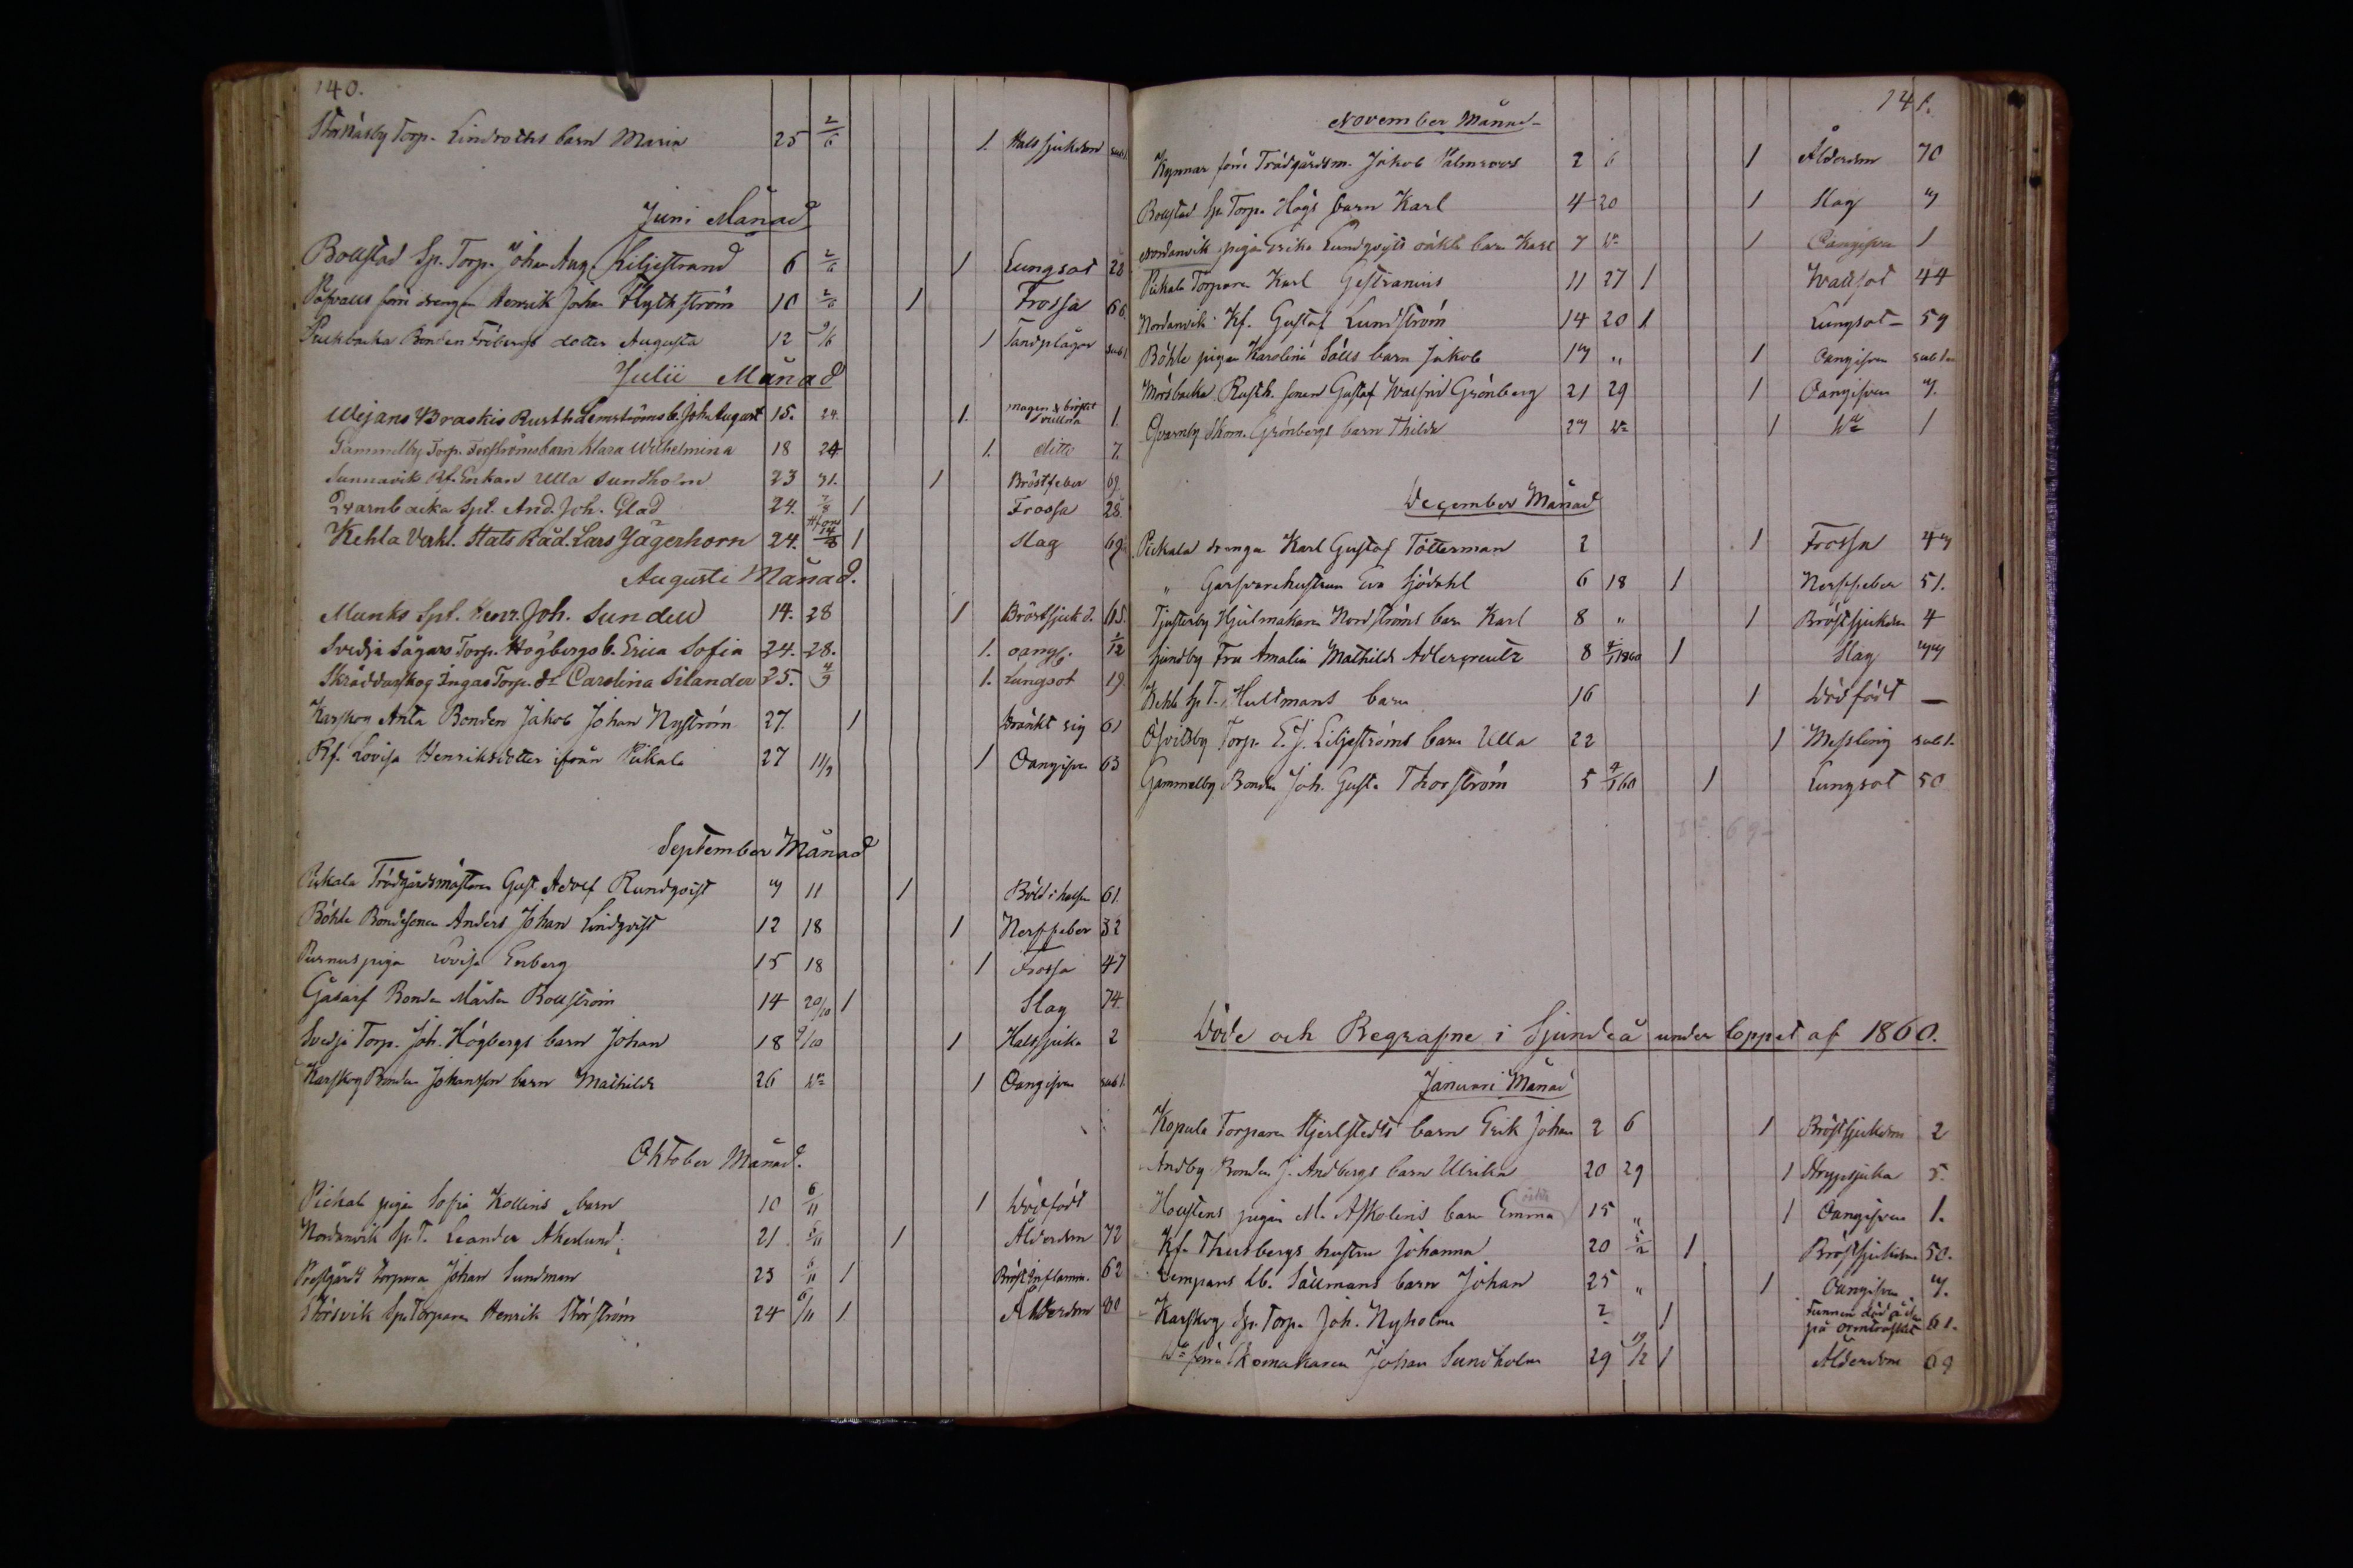 140.
Torp. Lindroths barn Maria 25 2/6 1. Halssjukdom sub 1
Juni Månad
Bollstad Sp. Torp. Johan Aug. Liljestrand 6 2/6 1 Lungsot 28
förre drengen Henrik Johan 10 2/6 1 Frossa 66
Bonden Frobergs dotter Augusta 12 9/6 1 Tandplågor sub 1
Julii Månad
Wejans Braskis Rusth. Lemströms b. Joh. August 15. 24. 1. 1.
Gammelby Torp. barn Klara Wilhelmina 18 24 1. ditto 7.
Sunnavik Rf. Enkan Ulla Sundholm 23 31. 1 Bröstfeber 69.
Qvarnbacka Spt. And. Joh. Glad 24. 7/8 1 Frossa 28.
Kehla Verkl. Stats Råd. Lars Jägerhorn 24. 14/8 1 Slag 69.
Augusti Månad.
Munks Spt. Henr. Joh. Sundell 14. 28 1 Bröstsjukd. 65.
Svedja Sågars Torp. Högbergs b. Erica Sofia 24. 28. 1. oangf. 1/12
Skräddarskog Ingas Torp. dr Carolina Silander 25. 4/9 1. Lungsot 19.
Karskog Anta Bonden Jakob Johan Nyström 27. 1 dränkt sig 61
Rf. Lovisa Henriksdotter ifrån Pikala 27 11/9 1 Oangifven 63
September Månad
Pikala Trädgårdsmästaren Gust. Adolf Rundqvist 7 11 1 Böld i halsen 61.
Böhle Bondesonen Anders Johan Lindqvist 12 18 1 Nerffeber 32
Purnus piga Lovisa Enberg 15 18 1 Frossa 47
Gåsarf Bonden Mårten Bollström 14 20/10 1 Slag 74.
Svedja Torp. Joh. Högbergs barn Johan 18 9/10 1 Halssjuka 2
Karskog Bonden Johansson barn Mathilda 26 Do 1 Oangifven sub 1.
Oktober Månad.
Pickala pigan Sofia Kollins barn 10 6/11 1 Dödfödt
Nordanvik Sp. T. Leander Åkerlund 21 6/11 1 Ålderdom 72
Prestgårds torparen Johan Sundman 23 6/11 1 Bröst Inflamm. 62
Störsvik Sp. Torparen Henrik Störström 24 6/11 1 Ålderdom 80
141.
November Månad
Kynnar förre Trädgårdsm. Jakob Palmroos 2 6 1 Ålderdom 70
Bollstad Sp. Torp. Högs barn Karl 4 20 1 Slag 7
Nordanvik pigan Erika Lundqvists oäkta barn Karl 7 Do 1 Oangifven 1
Pickala Torparen Karl Gestranius 11 27 1 Wattsot 44
Nordanvik Kf. Gustaf Lundström 14 20 1 Lungsot 59
Böhle pigan Karolina Sälls barn Jakob 17 „ 1 Oangifven sub 1
Mörsbacka Rusth. sonen Gustaf Walfrid Grönberg 21 29 1 Oangifven 7.
Qvarnby Skom. Grönbergs barn Thilda 27 Do 1 Do 1
December Månad
Pickala drengen Karl Gustaf Tötterman 2 1 Frossa 47
„ Garfvarehustrun Eva Sjödahl 6 18 1 Nerffeber 51.
Tjusterby Hjulmakaren Nordströms barn Karl 8 „ 1 Bröstsjukdom 4
Sjundby Fru Amalia Mathilda Adlercreutz 8 4/1 1860 1 Slag 77
Kehla Sp. T. Hultmans barn 16 1 Dödfödt —
Öfvitsby Torp. E. J. Liljeströms barn Ulla 22 1 Messling sub 1.
Gammelby Bonden Joh. Gust. Thorström 5 4/1 60 1 Lungsot 50
Döde och Begrafne i Sjundeå under loppet af 1860.
Januari Månad
Kopula Torparen Hjerlstedts barn Erik Johan 2 6 1 Bröstsjukdom 2
Andby Bonden J. Andbergs barn Ulrika 20 29 1 Strypsjuka 5.
pigan M. Askolins barn Emma oäkta 15 „ 1 Oangifven 1.
Kf. Thusbergs hustru Johanna 20 5/2 1 Bröstsjukdom 50.
Lempans Sällmans barn Johan 25 „ 1 Oangifven 7.
Karskog Sp. Torp. Joh. Nyholm ? 1 Funnen död på isen på träsket 61.
Do förre Skomakaren Johan Sundholm 29 19/2 1 Ålderdom 69